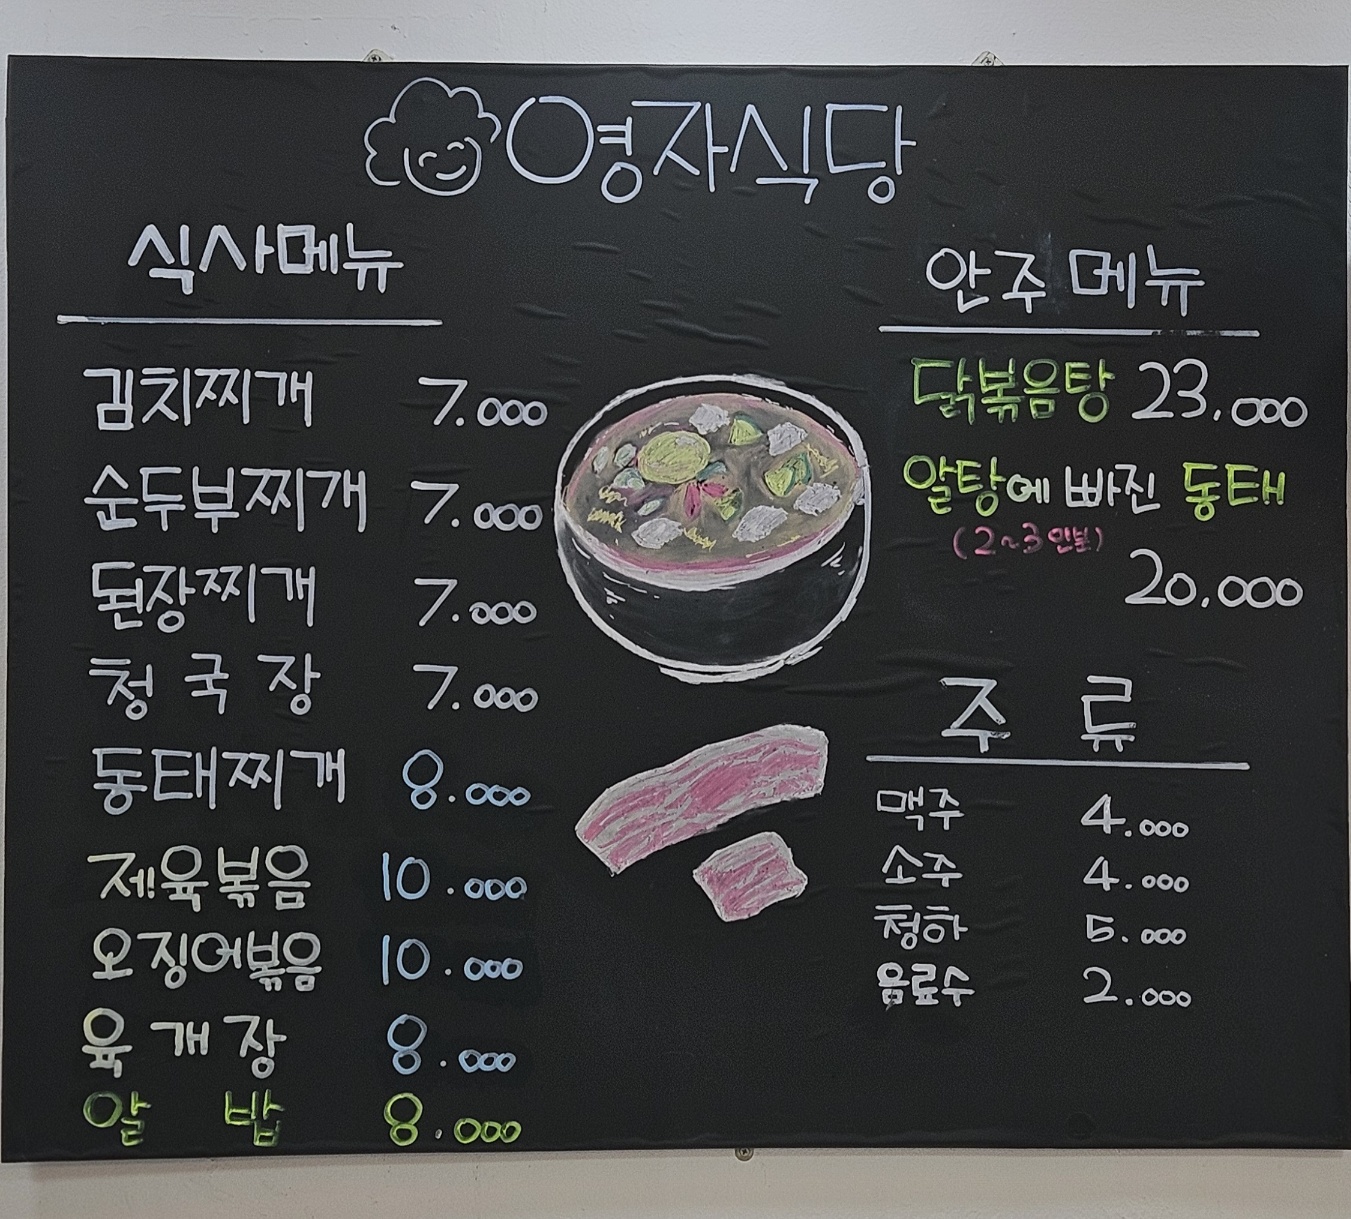 영자식당
식사메뉴
김치찌개 7.000
순두부찌개 7.000
된장찌개 7.000
청국장 7.000
동태찌개 8.000
제육볶음 10.000
오징어볶음 10.000
육개장 8.000
알 밥 8.000
안주메뉴
닭볶음탕 23.000
알탕에 빠진 동태
(2~3인분)
20.000
주 류
맥주 4.000
소주 4.000
청하 5.000
음료수 2.000